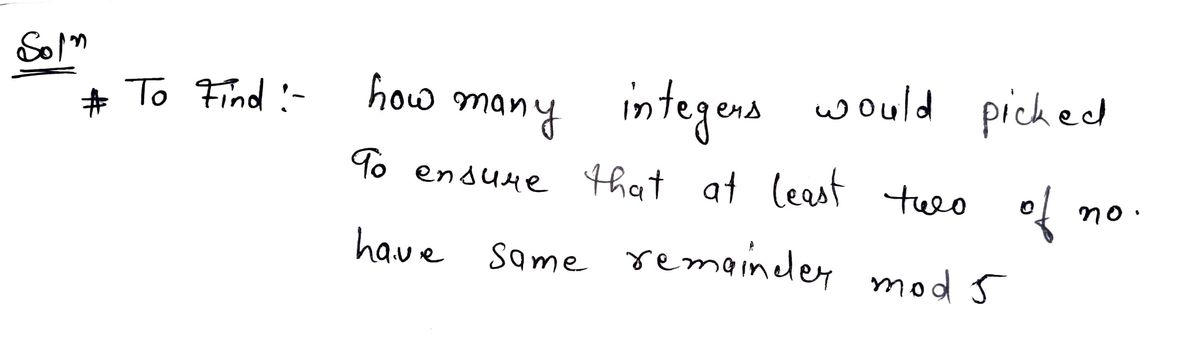 Solⁿ
# To Find :- how many integers would picked
To ensure that at least two of no.
have same remainder mod 5